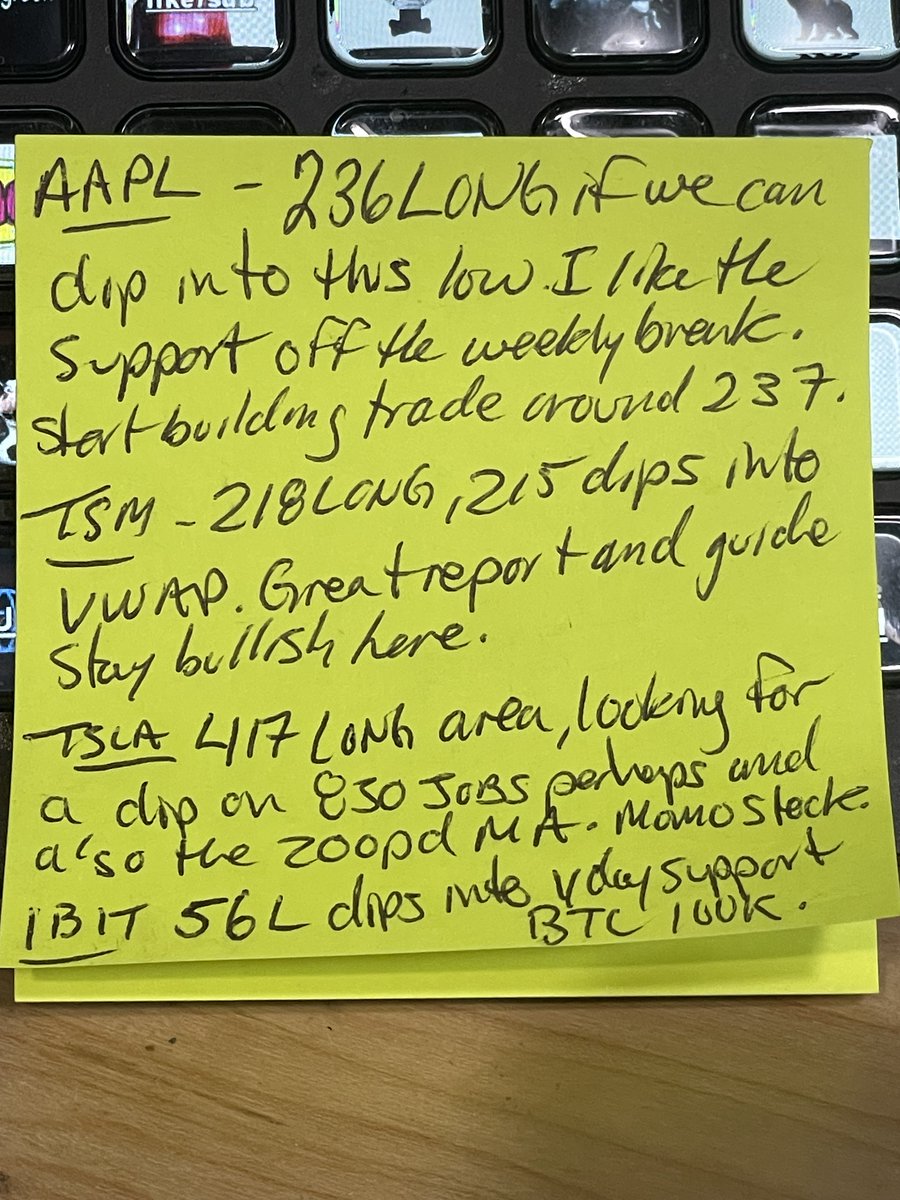 like/sub
AAPL - 236 LONG if we can
dip into this low. I like the
support off the weekly break.
Start building trade around 237.
TSM - 218 LONG, 215 dips into
VWAP. Great report and guide
Stay bullish here.
TSLA 417 LONG area, looking for
a dip on 830 JOBS perhaps and
also the 200pd MA. Momo Stock.
IBIT 56L dips into Vday support
BTC 100K.